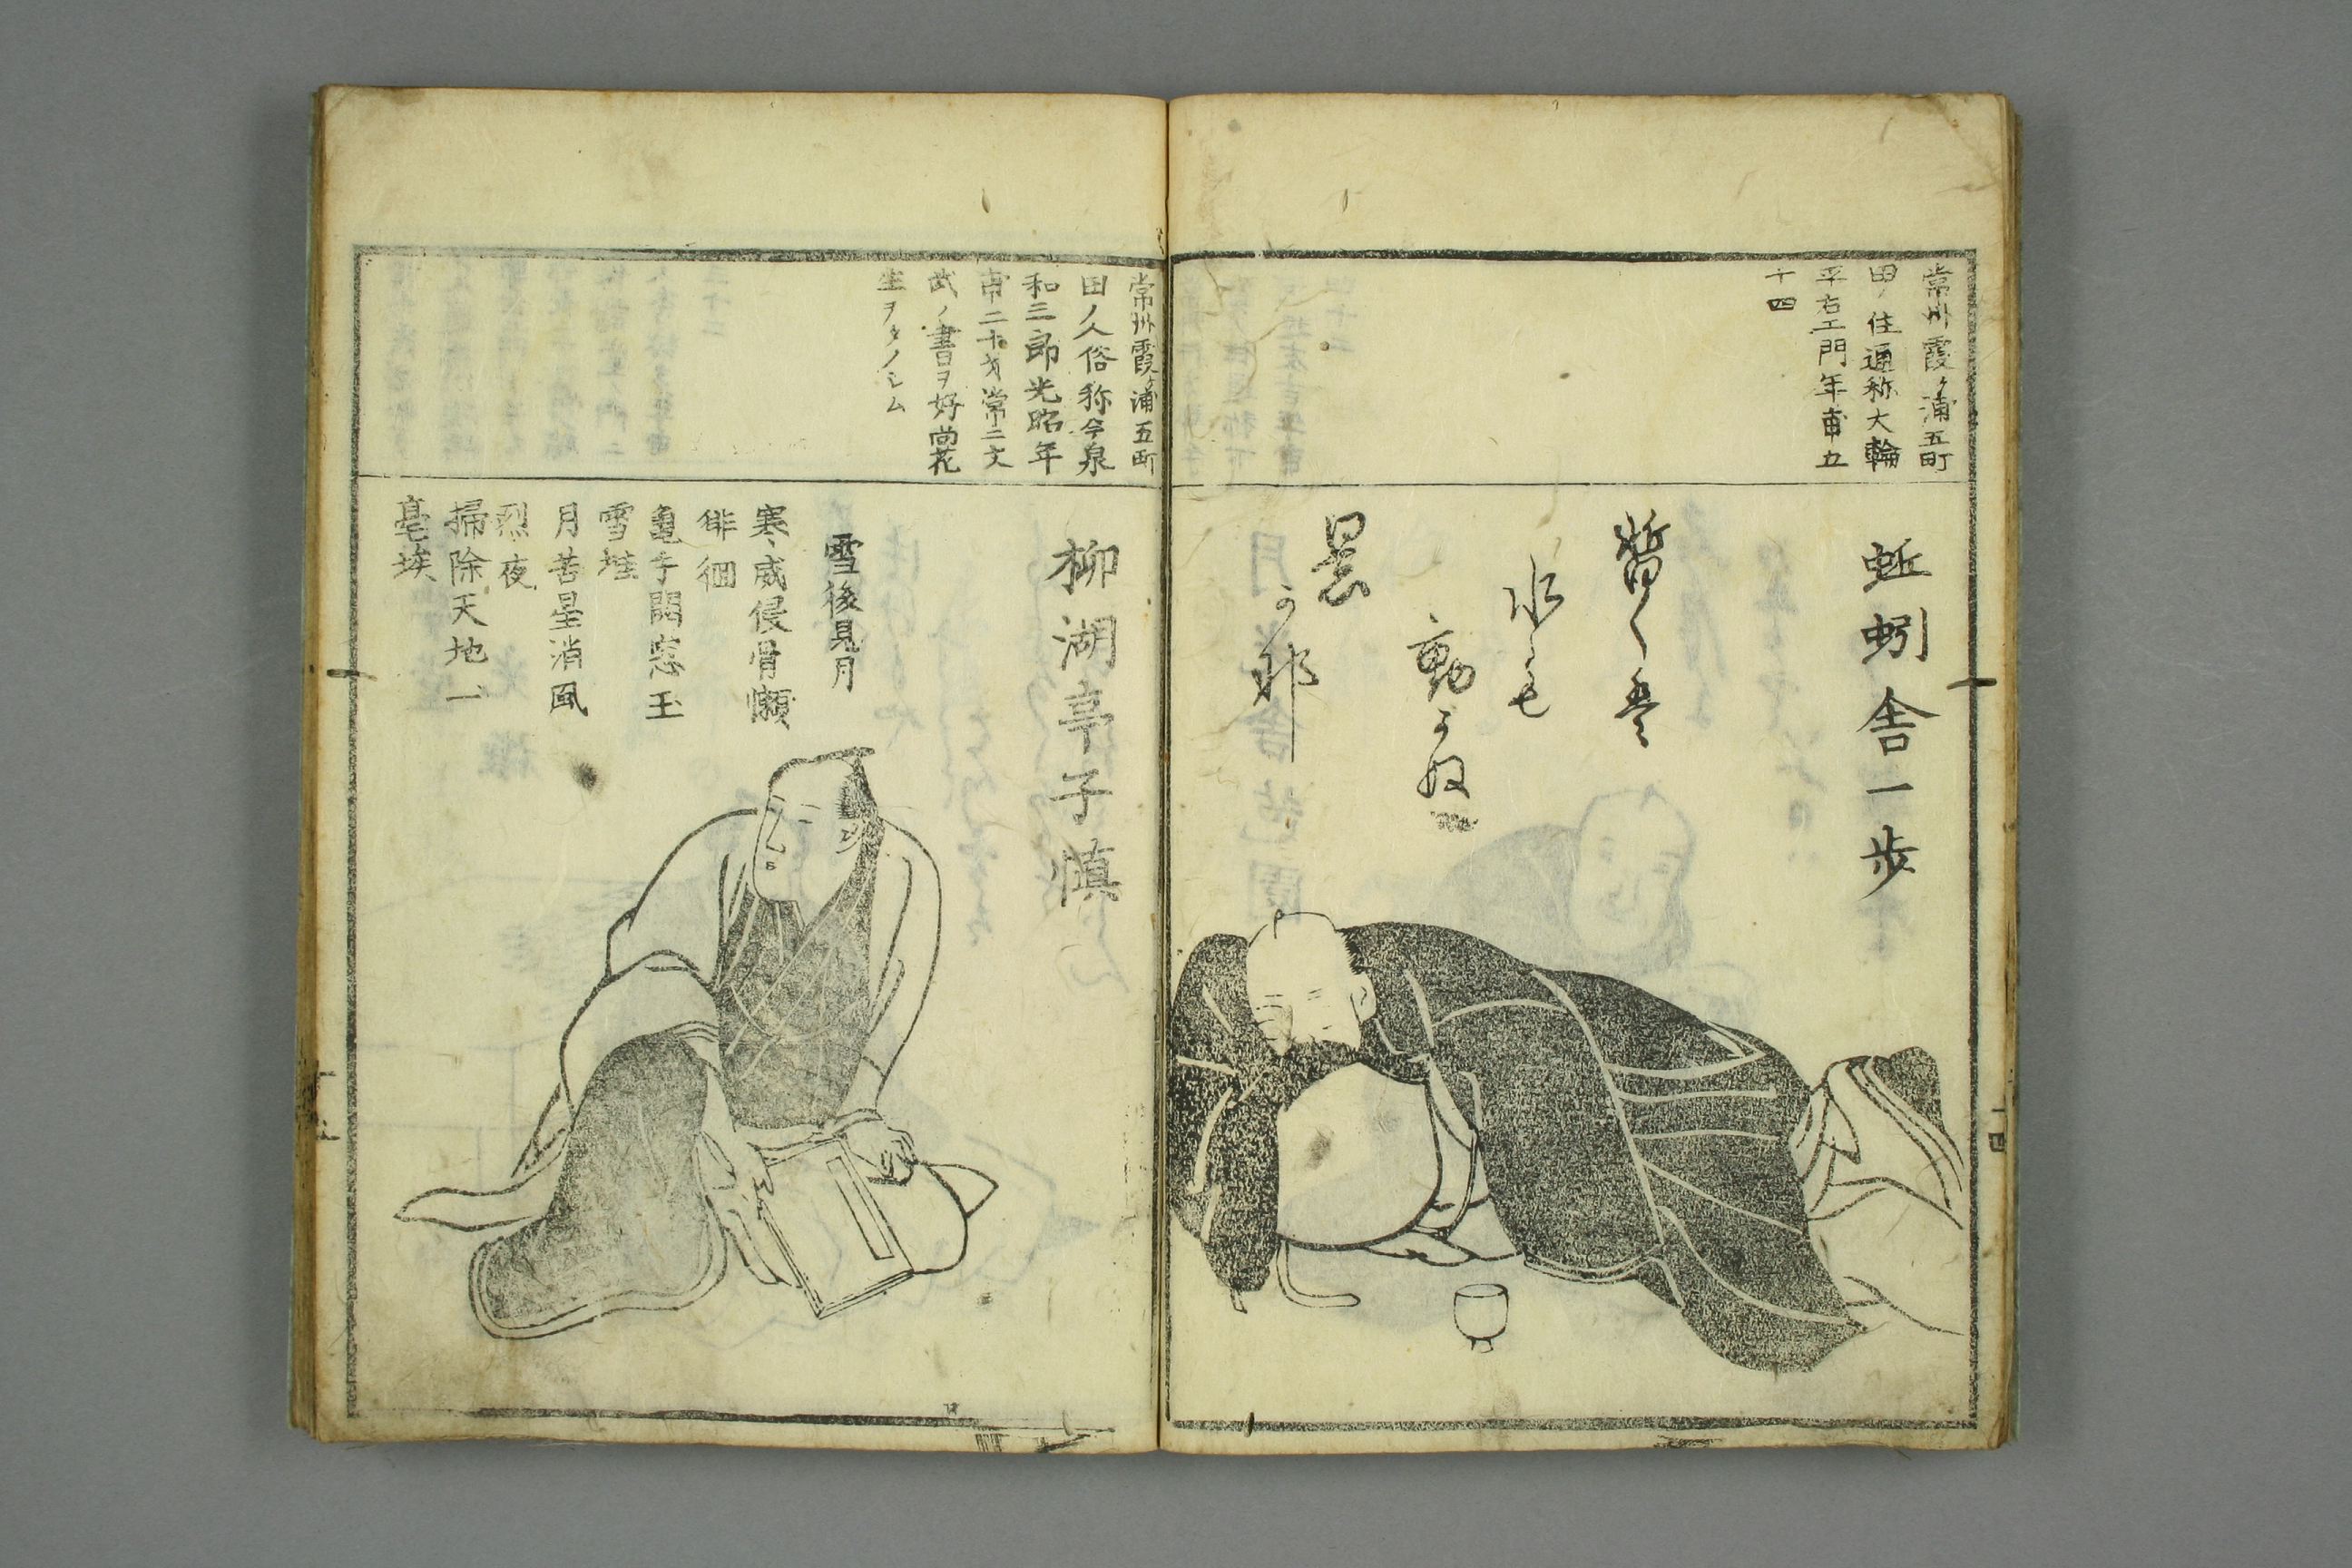 常州霞ヶ浦五町
田ノ住通称大輪
平右エ門年甫五
十四
蚯蚓舎一歩
暫く
水も
動かぬ
暑
可那
常州霞ヶ浦五町
田ノ人俗称今泉
和三郎光昭年
甫二十才常ニ文
武ノ書ヲ好尚花
生ヲタノシム
柳湖亭子慎
雪後見月
寒威侵骨懶
徘徊
亀手開窓玉
雪堆
月苦星消風
烈夜
掃除天地一
毫埃
十四